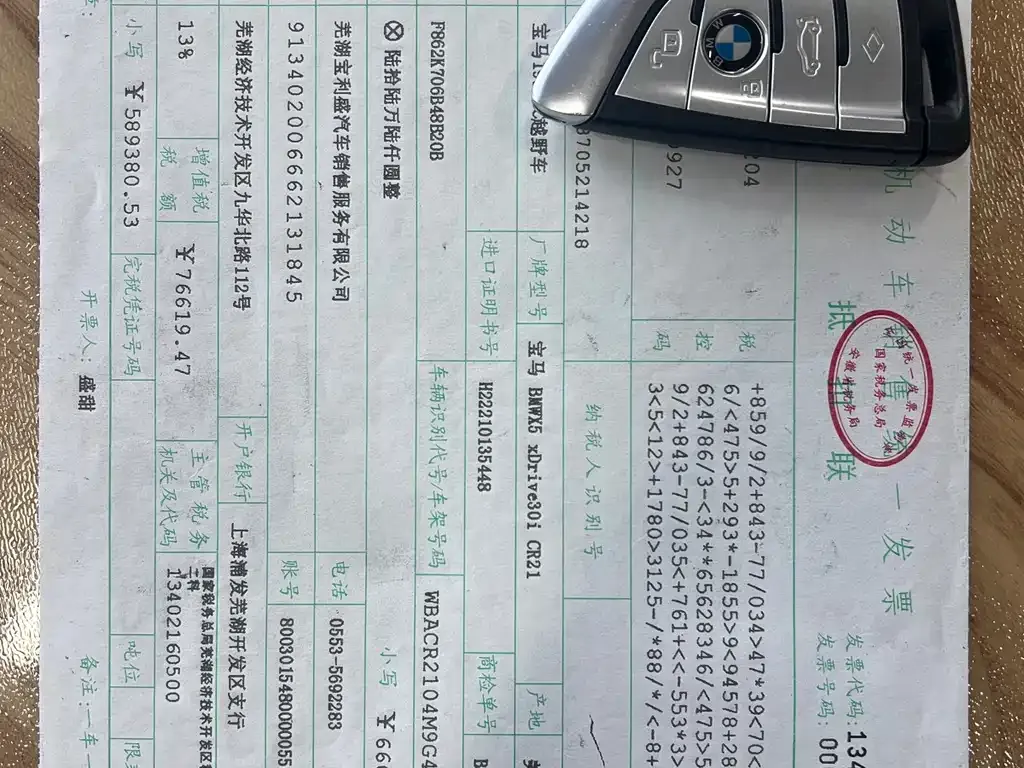 机动车销售统一发票
抵扣联
发票代码:134
发票号码:00
税控码
+859/9/2+843-77/034>47*39<70<
6/<475>5+293*-1855>9<94578+28
624786/3-<34**65628346/<475>5
9/2+843-77/035<+761+<<-553*3>
3<5<12>+1780>3125-/*88/*/<-8+
204
0927
纳税人识别号
8705214218
越野车
厂牌型号
宝马 BMWX5 xDrive30i CR21
产地
进口证明书号
H22210135448
商检单号
F862K706B48B20B
车辆识别代号/车架号码
WBACR2104M9G4
⊗ 陆拾陆万陆仟圆整
小写
¥66
芜湖宝利盛汽车销售服务有限公司
电话
0553-5692283
91340200666213184 5
账号
80030154800000055
芜湖经济技术开发区九华北路112号
开户银行
上海浦发芜湖开发区支行
13%
增值税税额
¥76619.47
主管税务机关及代码
国家税务总局芜湖经济技术开发区
13402160500
小写 ¥589380.53
完税凭证号码
吨位
开票人: 盛甜
备注:一车一
BMW